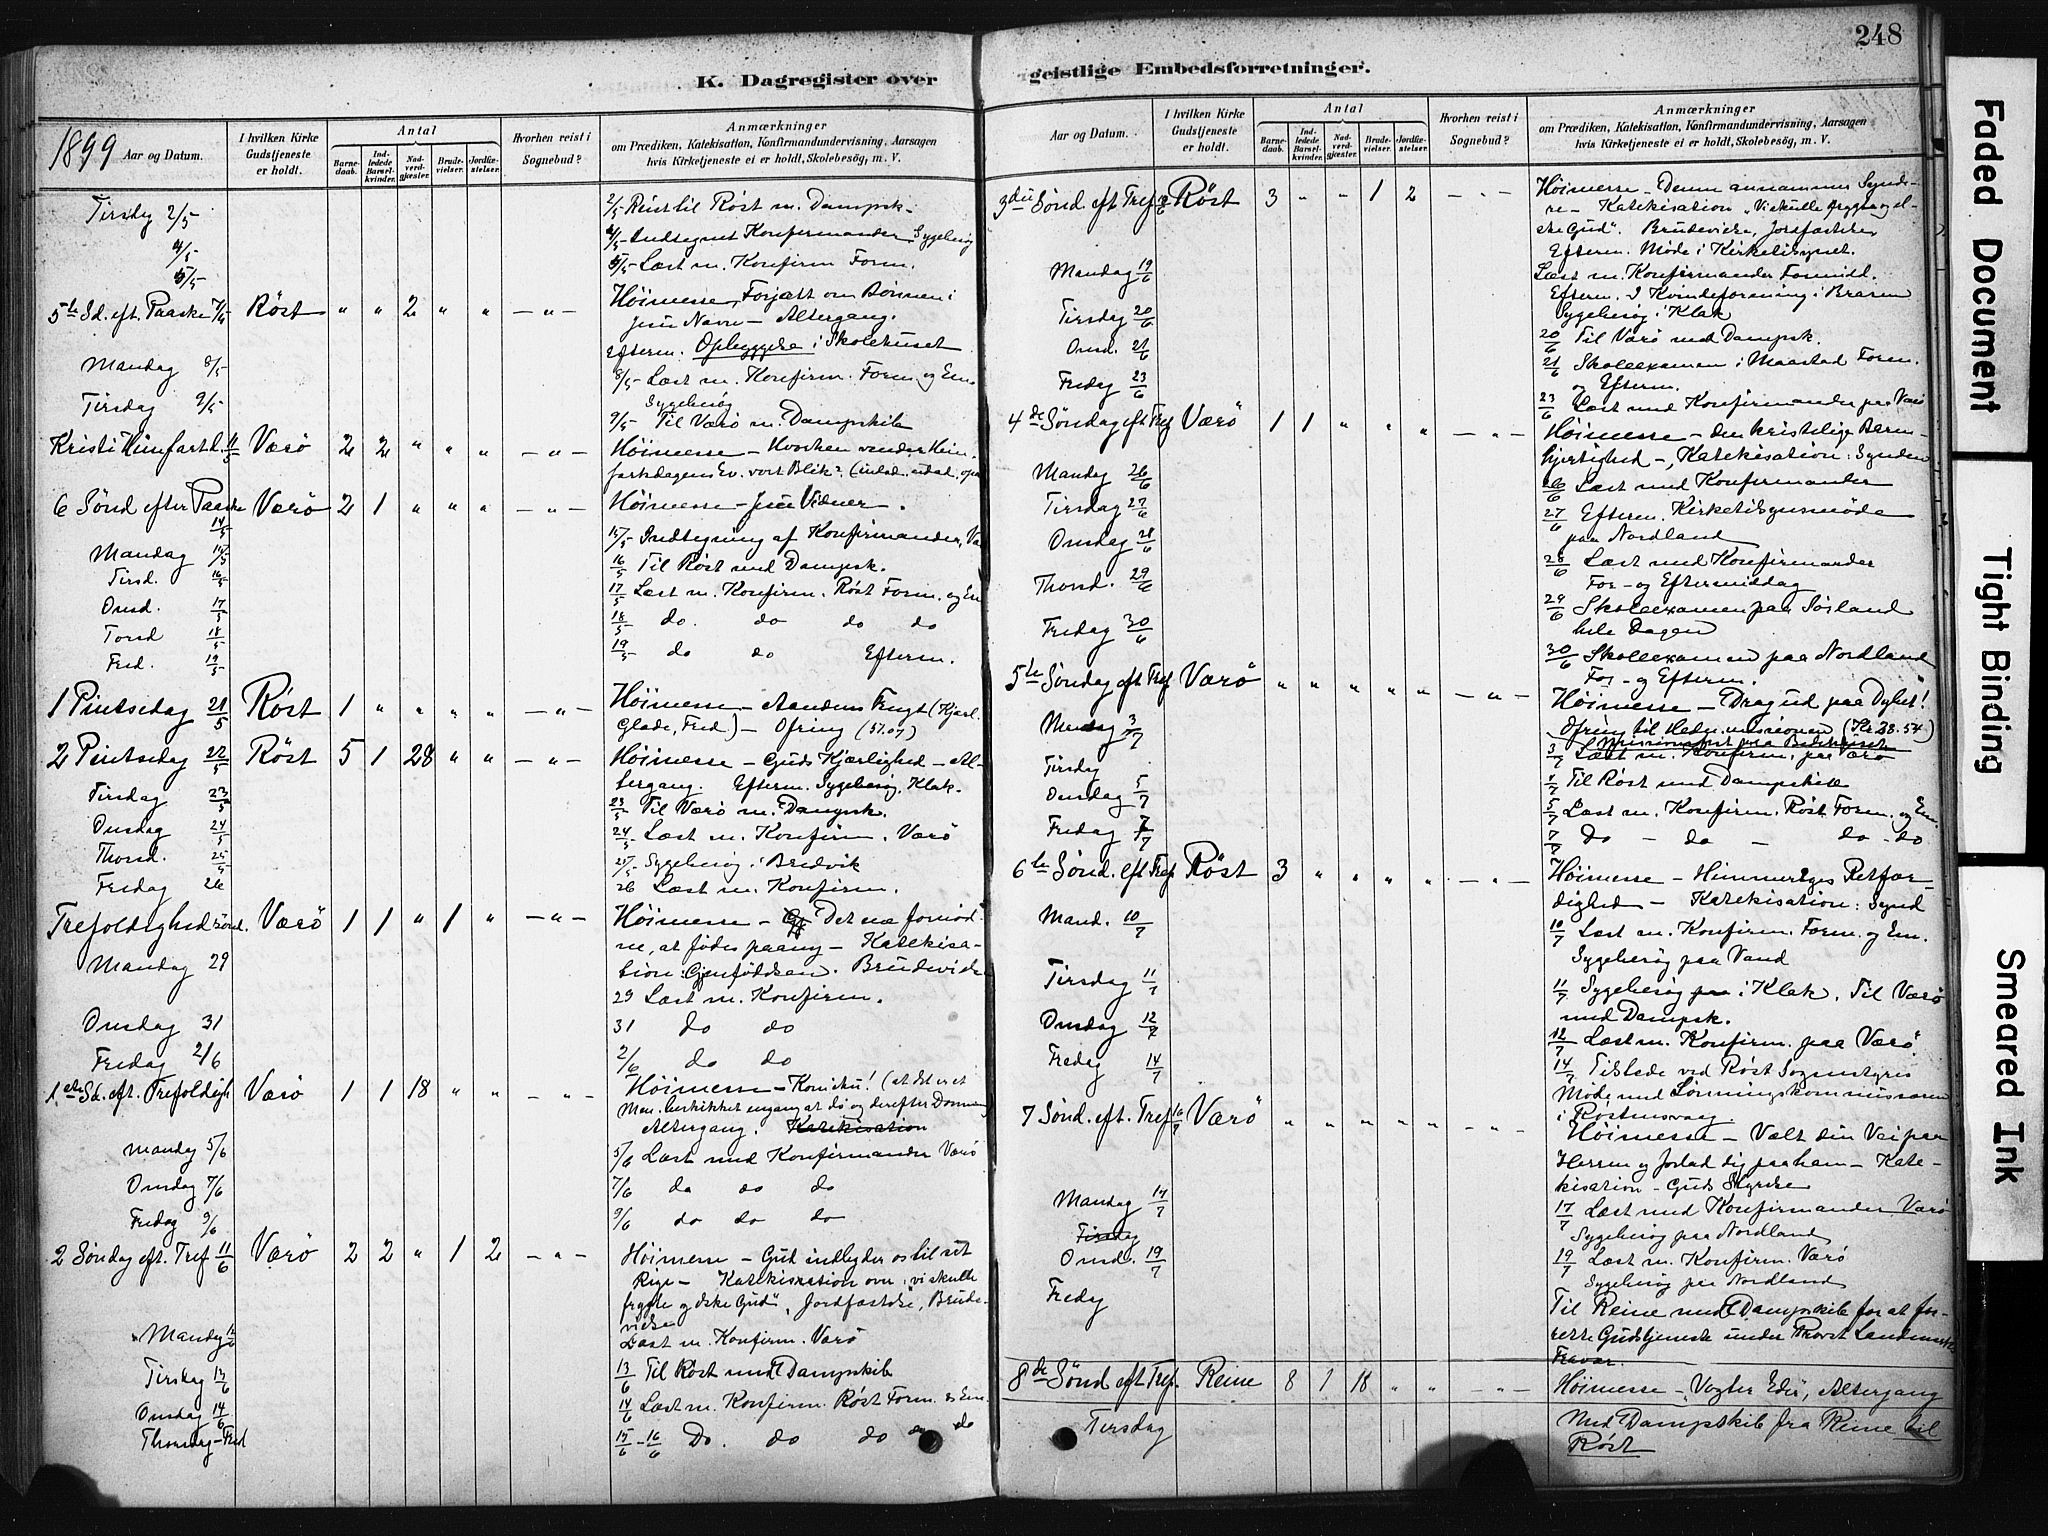 248
K. Dagregister over geistlige Embedsforretninger.
1899
Aar og Datum.
I hvilken Kirke Gudstjeneste er holdt.
Antal
Barnedaab.
Indledede Barselkvinder.
Nadverdgjester.
Brudevielser.
Jordfæstelser.
Hvorhen reist i Sognebud?
Anmærkninger
om Prædiken, Katekisation, Konfirmandundervisning, Aarsagen
hvis Kirketjeneste ei er holdt, Skolebesög, m. V.
Tirsdag 2/5
2/5 Reist til Röst m. Dampsk-
4/5
4/5 - Indtegnet Konfirmander, Sygebesög
5/5
5/5 - Læst m. Konfirm Form.
5te Sd. eft. Paaske 7/5 Röst " " 2 " " - " - Höimesse, Forjætt om Bönnen i
Jesu Navn - Altergang.
Efterm. Opbyggelse i Skolehuset
Mandag 8/5
8/5 - Læst m. Konfirm. Form. og Em.
Sygebesög
Tirsdag 9/5
9/5 - Til Værö m. Dampskib
Kristi Himfartsd. 11/5 Værö 2 2 " " " - " - Höimesse - Hvorhen vender Him-
fartsdagens Ev. vort Blik? (indad, udad, opad
6 Sönd efter Paaske Værö 2 1 " " " - " - Höimesse - Jesu Vidner.
14/5
Mandag 15/5
15/5 - Indtegning af Konfirmander, Værö
Tirsd. 16/5
16/5 - Til Röst med Dampsk.
Onsd. 17/5
17/5 - Læst m. Konfirm. Röst Form. og Em
Torsd 18/5
18/5 do. do do do
Fred. 19/5
19/5 - do do Efterm.
1 Pintsedag 21/5 Röst 1 " " " " - " - Höimesse - Aandens Frugt (Kjærl.
Glæde, Fred) - Ofring (57.07)
2 Pintsedag 22/5 Röst 5 1 28 " " - " - Höimesse - Guds Kjærlighed - Al-
tergang. Efterm. Sygebesög, Klak.
Tirsdag 23/5
23/5 - Til Værö m. Dampsk.
Onsdag 24/5
24/5 - Læst m. Konfirm. Værö
Thorsd. 25/5
25/5 - Sygebesög i Bredvik
Fredag 26
26 Læst m. Konfirm.
Trefoldighedssönd. Værö 1 1 " 1 " - " - Höimesse - Det var fornöd-
ne, at födes paany - Katekisa-
tion: Gjenfödelsen. Brudevielse
Mandag 29
29 Læst m. Konfirm.
Onsdag 31
31 do do
Fredag 2/6
2/6 do do
1ste Sd. eft. Trefoldigh Værö 1 1 18 " " - " - Höimesse - Kom ihu! (at det er et
Men. beskikket engang at dö og derefter Dommen
Altergang. Katekisation
Mandag 5/6
5/6 Læst med Konfirmander Værö
Onsdag 7/6
7/6 do do do
Fredag 9/6
9/6 do do do
2 Söndag eft. Tref 11/6 Værö 2 2 " 1 2 - " - Höimesse - Gud indbyder os til sit
Rige - Katekisation over: vi skulle
frygte og elske Gud", Jordfæstelse, Brude-
vielse
Mandag 12/6
Læst m. Konfirm. Værö
Tirsdag 13/6
13/6 - Til Röst med Dampskib
Onsdag 14/6
14/6 Læst m. Konfirm. Röst Form. & Em.
Thorsdag - Fred
15/6 - 16/6 Do. do do do do
Aar og Datum.
I hvilken Kirke Gudstjeneste er holdt.
Antal
Barnedaab.
Indledede Barselkvinder.
Nadverdgjester.
Brudevielser.
Jordfæstelser.
Hvorhen reist i Sognebud?
Anmærkninger
om Prædiken, Katekisation, Konfirmandundervisning, Aarsagen
hvis Kirketjeneste ei er holdt, Skolebesög, m. V.
3die Sönd eft Tref Röst 3 " " 1 2 - " - Höimesse - Denne annammer Synde-
re - Katekisation "Vi skulle frygte og el-
ske Gud". Brudevielse, Jordfæstelse
Efterm. Möde i Kirketilsynet.
Mandag 19/6
Læst m. Konfirmander Formidd.
Efterm. I Kvindeforening i
Sygebesög i Klak
Tirsdag 20/6
20/6 Til Værö med Dampsk.
Onsd. 21/6
21/6 Skoleexamen i Maastad Form.
og Efterm.
Fredag 23/6
23/6 Læst med Konfirmander paa Værö
4de Söndag eft Tref Værö 1 1 " " " - " - Höimesse - den kristelige Barm-
hjertighed -, Katekisation: Synden
Mandag 26/6
26/6 Læst med Konfirmander
Tirsdag 27/6
27/6 Efterm. Kirketilsynsmöde
paa Nordland
Onsdag 28/6
28/6 Læst med Konfirmander
For- og Eftermiddag
Thorsd. 29/6
29/6 Skoleexamen paa Sörland
hele Dagen
Fredag 30/6
30/6 Skoleexamen paa Nordland
For- og Efterm.
5te Söndag eft Tref Værö " " " " " - " - Höimesse - Drag ud paa Dybet!
Ofring til Hedn.missionen (Kr 28.54)
Mandag 3/7
3/7 Læst m. Konfirm. paa Værö
Tirsdag
4/7 Til Röst med Dampskib
Onsdag 5/7
5/7 Læst m. Konfirm. Röst Form. og Em.
Fredag 7/7
7/7 Do - do - do - do
6te Sönd. eft Tref Röst 3 " " " " - " - Höimesse - Himmeriges Retfær-
dighed - Katekisation: Synd
Mand. 10/7
10/7 Læst m. Konfirm. Form. og Em.
Sygebesög paa Vand
Tirsdag 11/7
11/7 Sygebesög paa i Klak. Til Værö
med Dampsk.
Onsdag 12/7
12/7 Læst m. Konfirm. paa Værö
Fredag 14/7
14/7 Tilstede ved Röst Sognestyres
Möde med Lönningskommissionen
i Röstnesvaag
7 Sönd. eft. Tref 16/7 Værö " " " " " - " - Höimesse - Vælt din Vei paa
Herren og forlad dig paa ham - Kate-
kisation - Guds Styrelse
Mandag 17/7
17/7 Læst med Konfirmander Værö
Tirsdag
Sygebesög paa Nordland
Onsd. 19/7
19/7 Læst m. Konfirm. Værö
Sygebesög paa Nordland
Fredag
Til Reine med Dampskib for at for-
rette Gudstjeneste under Provst
Fravær.
8de Sönd eft Tref. Reine 8 1 18 " " - " - Höimesse - Vogter Eder, Altergang
Tirsdag
Med Dampskib fra Reine til
Röst
Faded Document
Tight Binding
Smeared Ink